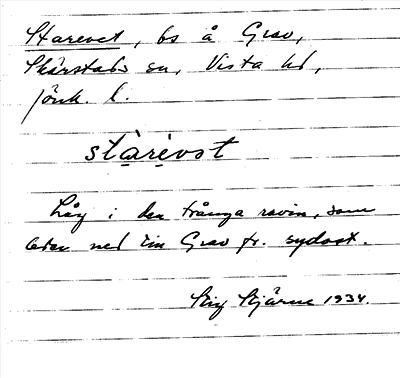 Starevet, bs å Grav,
Skärstads sn, Vista hd,
jönk. l.
stạ̀rẹ̀vst
Låg i den trånga ravin, som
leder ned till Grav fr. sydost.
Stig Stjärne 1934.